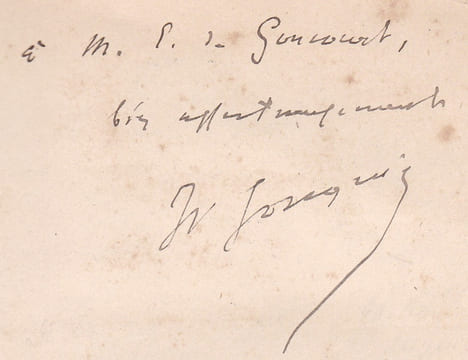 à M. E. de Goncourt,
bien affectueusement